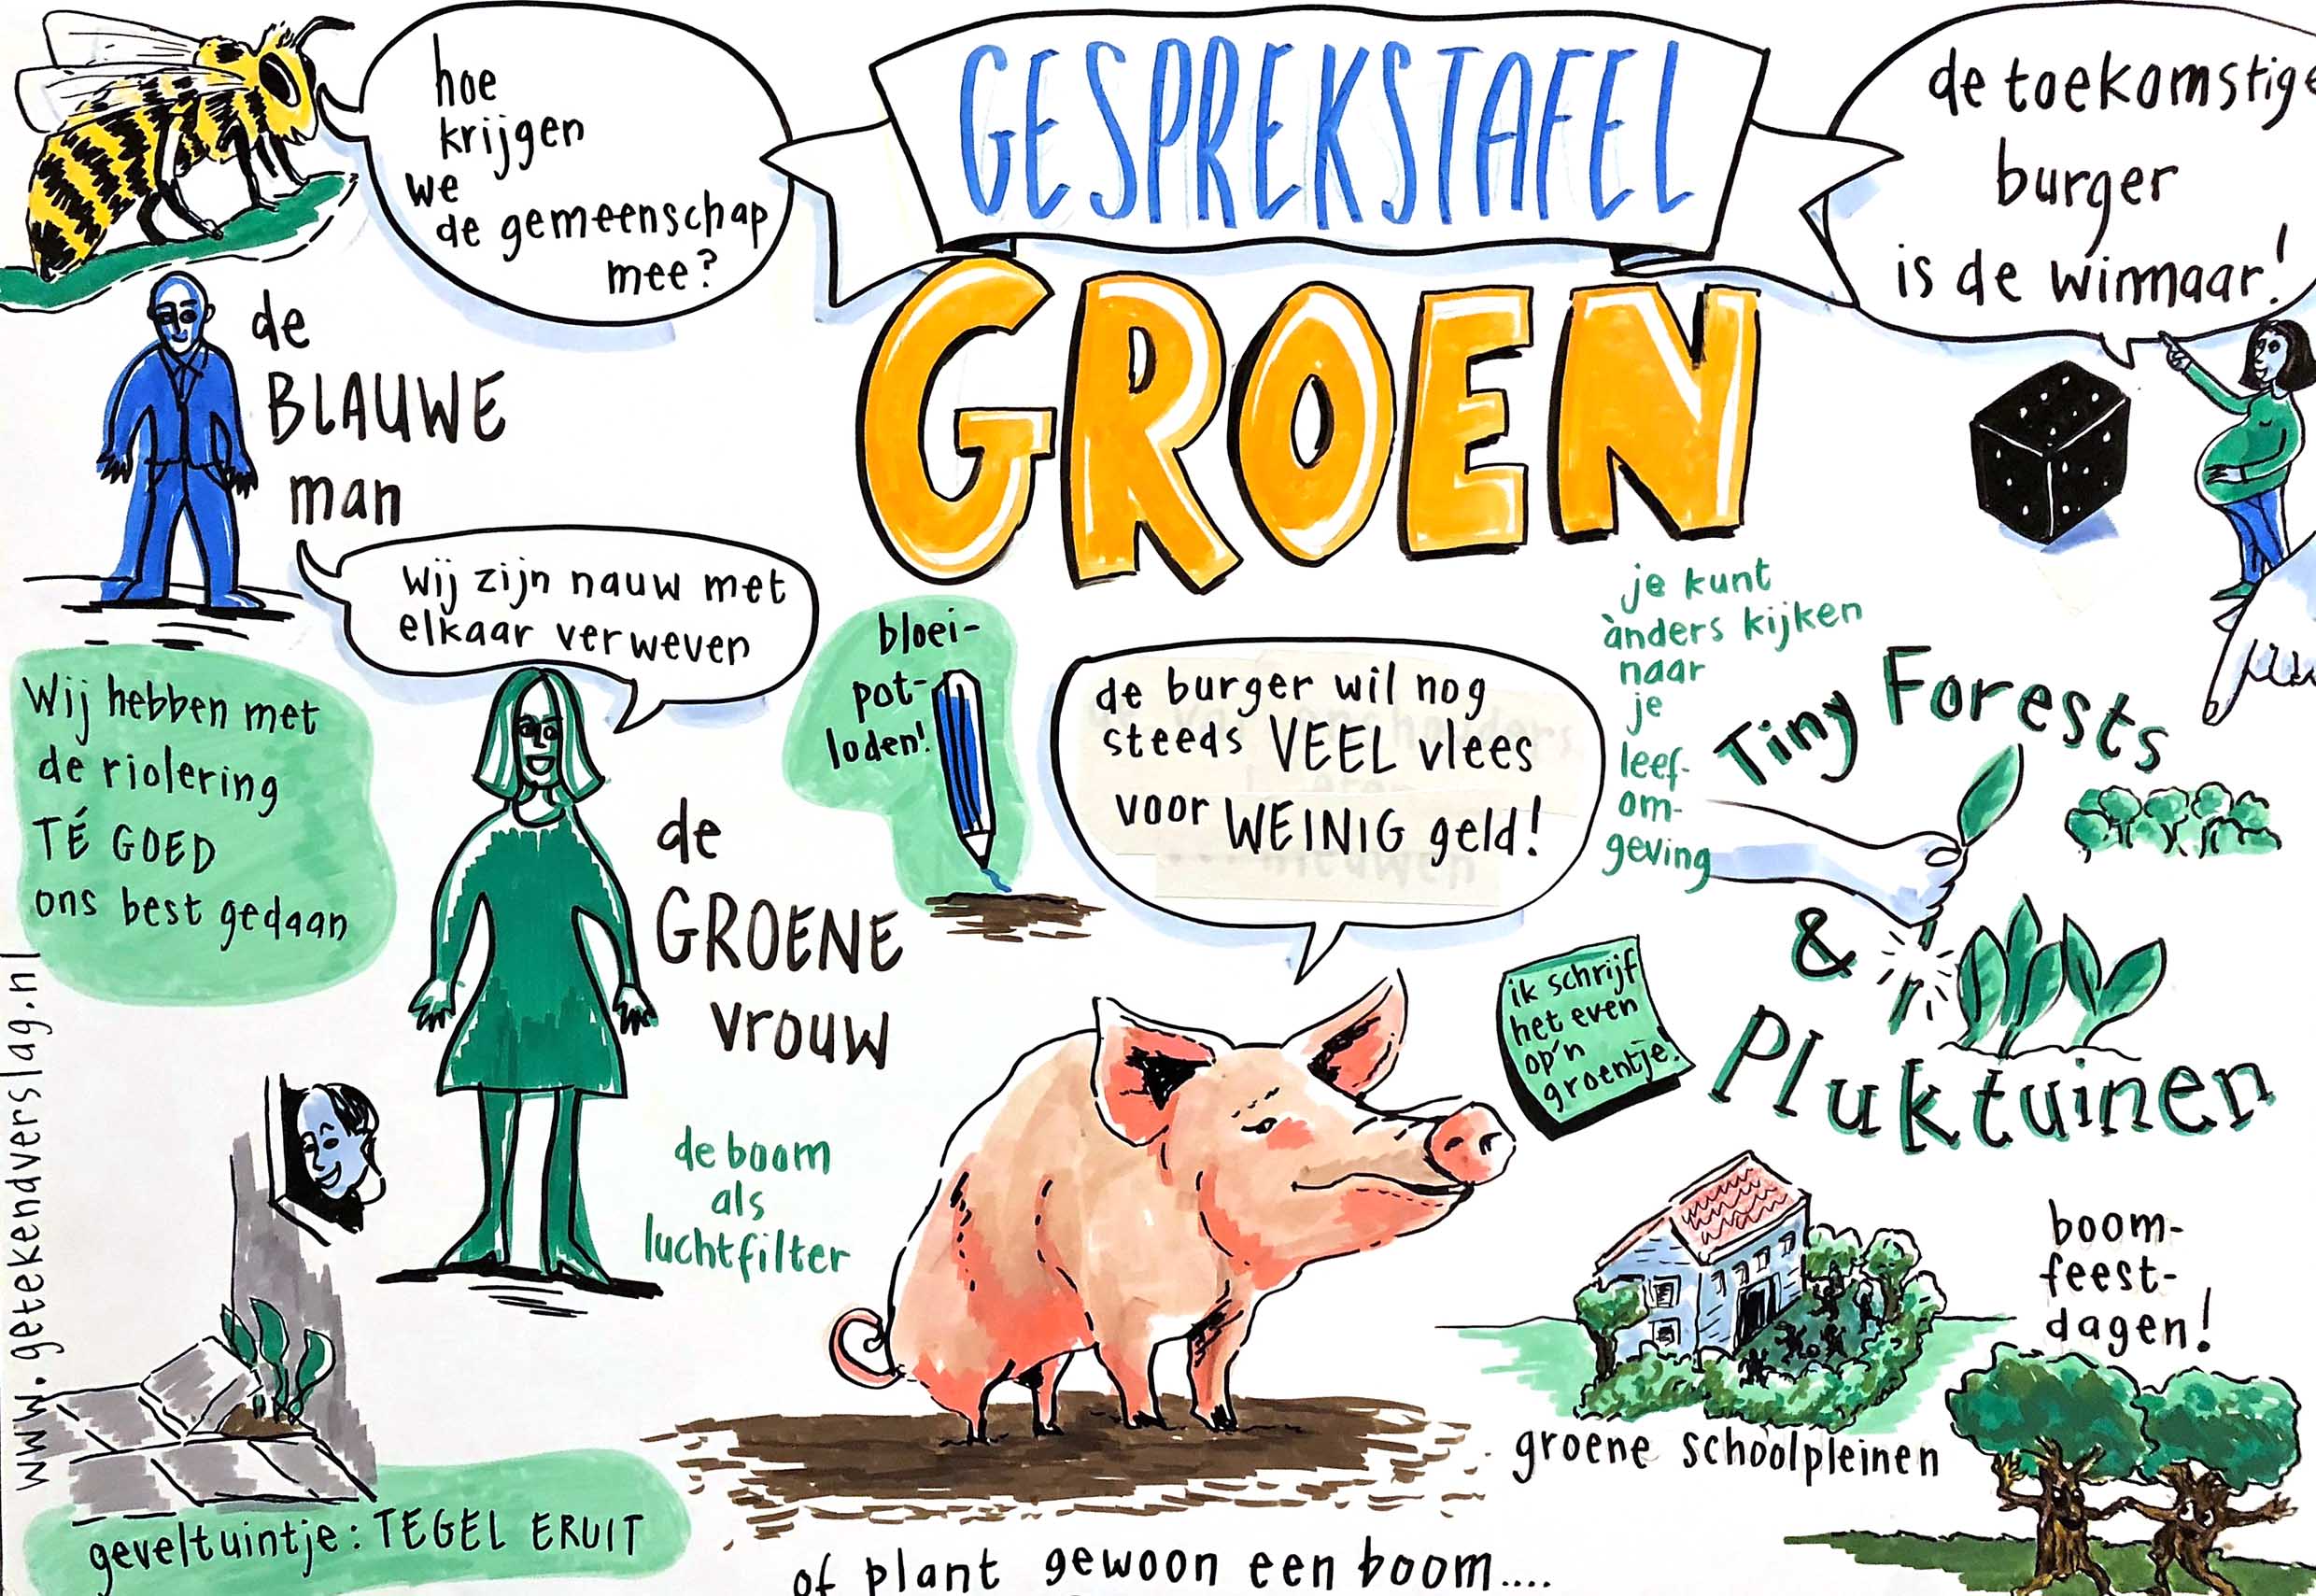 hoe
krijgen
we
de gemeenschap
mee?
GESPREKSTAFEL
GROEN
de toekomstige
burger
is de winnaar!
de
BLAUWE
man
wij zijn nauw met
elkaar verweven
Wij hebben met
de riolering
TÉ GOED
ons best gedaan
de
GROENE
vrouw
bloei-
pot-
loden!
de burger wil nog
steeds VEEL vlees
voor WEINIG geld!
je kunt
ànders kijken
naar
je
leef-
om-
geving
Tiny Forests
&
Pluktuinen
ik schrijf
het even
op'n
groentje!
de boom
als
luchtfilter
groene schoolpleinen
boom-
feest-
dagen!
geveltuintje: TEGEL ERUIT
of plant gewoon een boom....
www.getekendverslag.nl